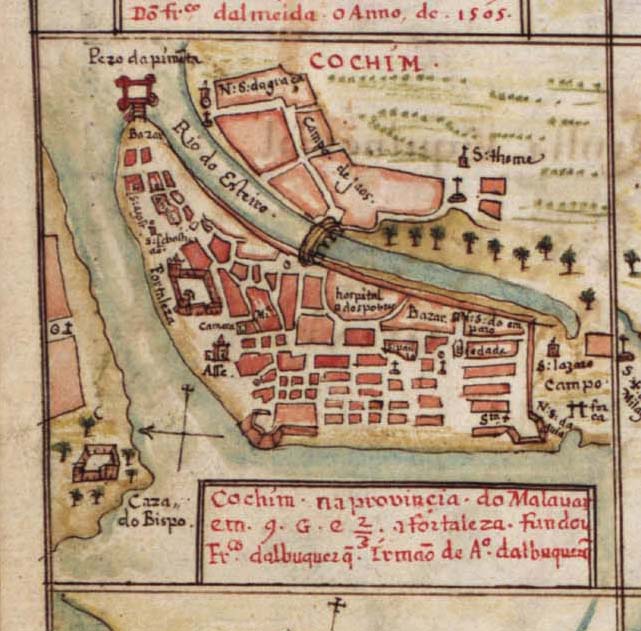 Dõ frᶜᵒ dalmeida. o Anno, de. 1505.
Pezo da pimẽta
COCHIM.
N: S: da graça
Bazar
Rio do Esteiro.
Campo
de Jaos.
S: thome
Fortaleza
hospital
dos pobres
Bazar
N: S: do em
paro
Camara
Asse.
S: lazaro
Campo.
for
ca
N: S: da
C
Caza,,
do Bispo.
Cochim. na provincia. do Malavar
em. 9. G. e 2/3. a fortaleza. fundou
Frᶜᵒ dalbuquerq̃. Irmaõ de Aº. dalbuquerq̃